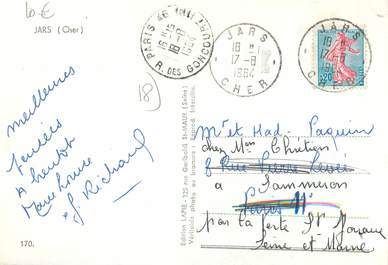 10 €
JARS (Cher)
PARIS 46
1964
R. DES GONCOURT
JARS
18 H
17-8
1964
CHER
JARS
18 H
17-8
CHER
0,20
18
meilleures
pensées
A bientôt
J. Richard
Edition LAPIE - 125 rue Garibaldi St-MAUR (Seine)
Véritable photo au bromure - Reprod. Interdite.
Mr et Mad. Paquin
chez Mme Chrétien
8 Rue Pierre Levée
à Sammeron
Paris 11e
par la Ferté St Jouarre
Seine et Marne
170.